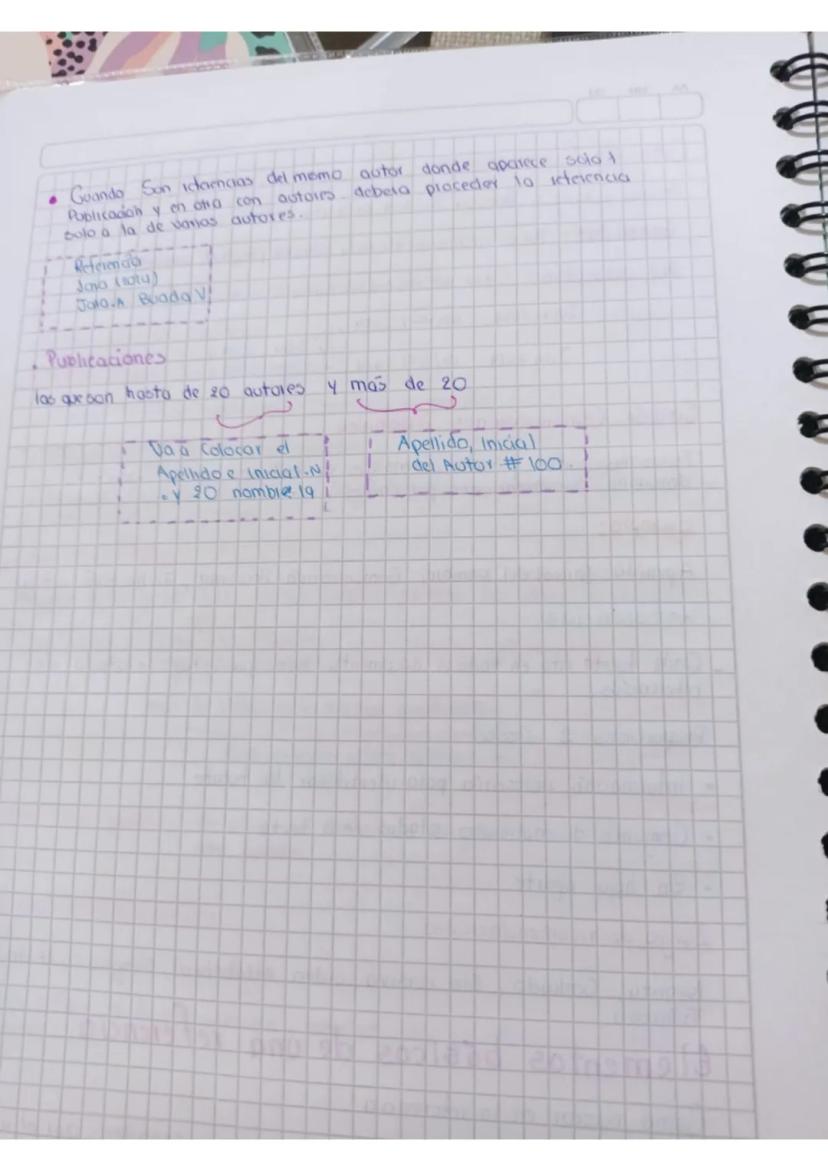 • Cuando Son referencias del mismo autor donde aparece solo 1
Publicación y en otra con autores debera proceder la referencia
solo a la de varios autores.
Referencia
Jara (2014)
Jara.A Boada V
• Publicaciones
las que son hasta de 20 autores y más de 20
Va a colocar el
Apellido e inicial.N
.y 20 nombre 19
Apellido, Inicial
del Autor # 100